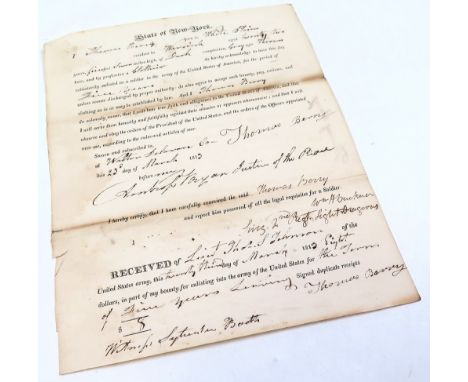 State of New-York.
I Thomas Berry born in White Plains
aged twenty two
years, five feet seven inches high, of dark complexion, Grey eyes, Brown
hair, and by profession a Clothier do hereby acknowledge to have this day
voluntarily enlisted as a soldier in the army of the United States, for the period of
Five years
unless sooner discharged by proper authority: do also agree to accept such bounty, pay, rations, and
clothing as is or may be established by law. And I Thomas Berry
do solemnly swear, that I will bear true faith and allegiance to the United States of America, and that
I will serve them honestly and faithfully against their enemies or opposers whomsoever; and that I will
observe and obey the orders of the President of the United States, and the orders of the Officers appointed
over me, according to the rules and articles of war.
Sworn and subscribed to
at Walton Delaware Co Thomas Berry
this 23d day of March 1813
before me
Justice of the Peace
I hereby certify, that I have carefully examined the said Thomas Berry
and report him possessed of all the legal requisites for a Soldier
2nd Regt Light Dragoons
RECEIVED of Lieut Johnson of the
United States army, this twenty third day of March 1813 Eight
dollars, in part of my bounty for enlisting into the army of the United States for the Term
of Five Years Signed duplicate receipts
$ 8 Thomas Berry
Witness Sylvester Booth